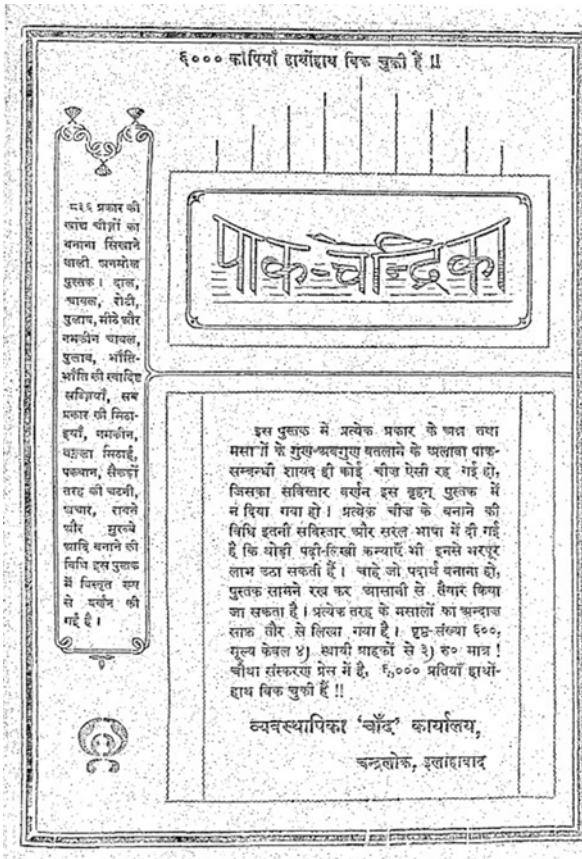 ६००० कापियाँ हाथोंहाथ बिक चुकी हैं !!
पाक-चन्द्रिका
८३६ प्रकार की
खाद्य चीज़ों का
बनाना सिखाने
वाली अनमोल
पुस्तक। दाल,
चावल, रोटी,
पुलाव, मीठे और
नमकीन चावल,
पुलाव, भाँति-
भाँति की स्वादिष्ट
सब्ज़ियाँ, सब
प्रकार की मिठा-
इयाँ, नमकीन,
बङ्गला मिठाई,
पकवान, सैकड़ों
तरह की चटनी,
अचार, रायते
और मुरब्बे
आदि बनाने की
विधि इस पुस्तक
में विस्तृत रूप
से वर्णन की
गई है।
इस पुस्तक में प्रत्येक प्रकार के अन्न तथा
मसालों के गुण-अवगुण बतलाने के अलावा पाक-
सम्बन्धी शायद ही कोई चीज़ ऐसी रह गई हो,
जिसका सविस्तार वर्णन इस बृहत् पुस्तक में
न दिया गया हो। प्रत्येक चीज़ के बनाने की
विधि इतनी सविस्तार और सरल भाषा में दी गई
है कि थोड़ी पढ़ी-लिखी कन्याएँ भी इनसे भरपूर
लाभ उठा सकती हैं। चाहे जो पदार्थ बनाना हो,
पुस्तक सामने रख कर आसानी से तैयार किया
जा सकता है। प्रत्येक तरह के मसालों का अन्दाज़
साफ़ तौर से लिखा गया है। पृष्ठ-संख्या ६००,
मूल्य केवल ४) स्थायी ग्राहकों से ३) रु० मात्र !
चौथा संस्करण प्रेस में है, ६,००० प्रतियाँ हाथों-
हाथ बिक चुकी हैं !!
व्यवस्थापिका 'चाँद' कार्यालय,
चन्द्रलोक, इलाहाबाद